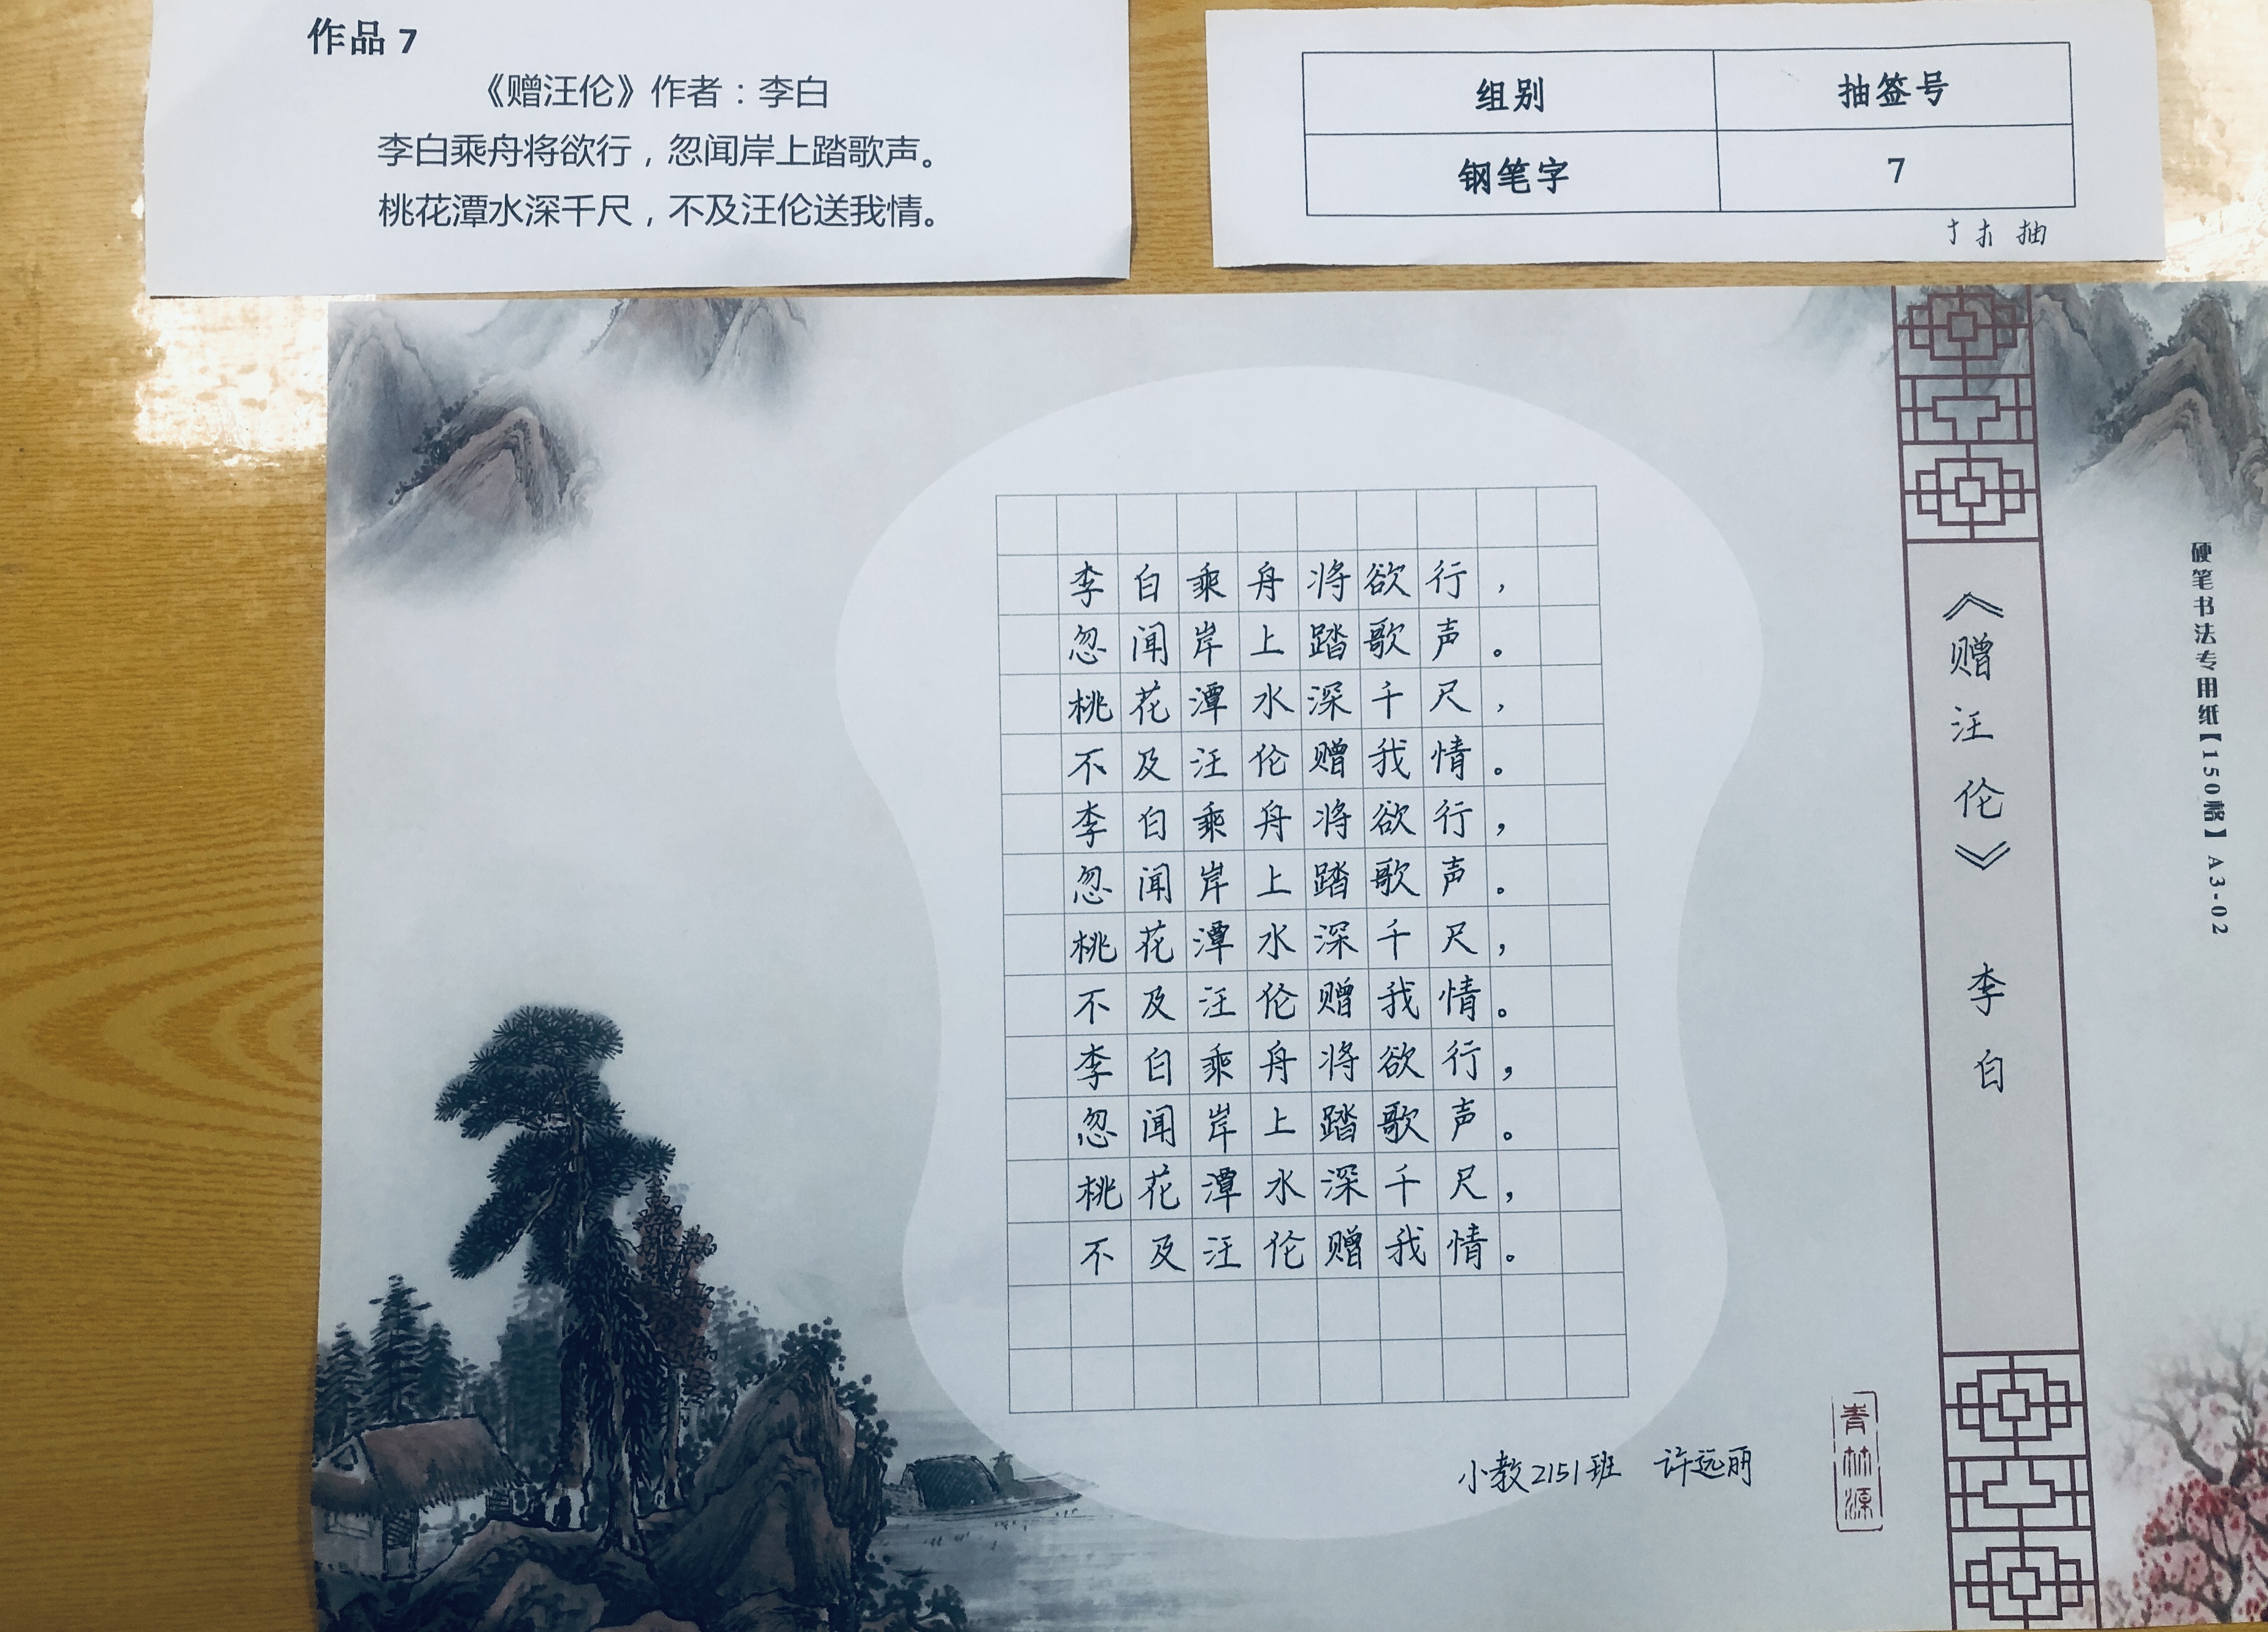 作品 7
《赠汪伦》作者：李白
李白乘舟将欲行，忽闻岸上踏歌声。
桃花潭水深千尺，不及汪伦送我情。
组别 抽签号
钢笔字 7
扌 扌 抽
李白乘舟将欲行，
忽闻岸上踏歌声。
桃花潭水深千尺，
不及汪伦赠我情。
李白乘舟将欲行，
忽闻岸上踏歌声。
桃花潭水深千尺，
不及汪伦赠我情。
李白乘舟将欲行，
忽闻岸上踏歌声。
桃花潭水深千尺，
不及汪伦赠我情。
小教2151班 许远丽
青林源
《赠汪伦》 李白
硬笔书法专用纸【150格】A3-02